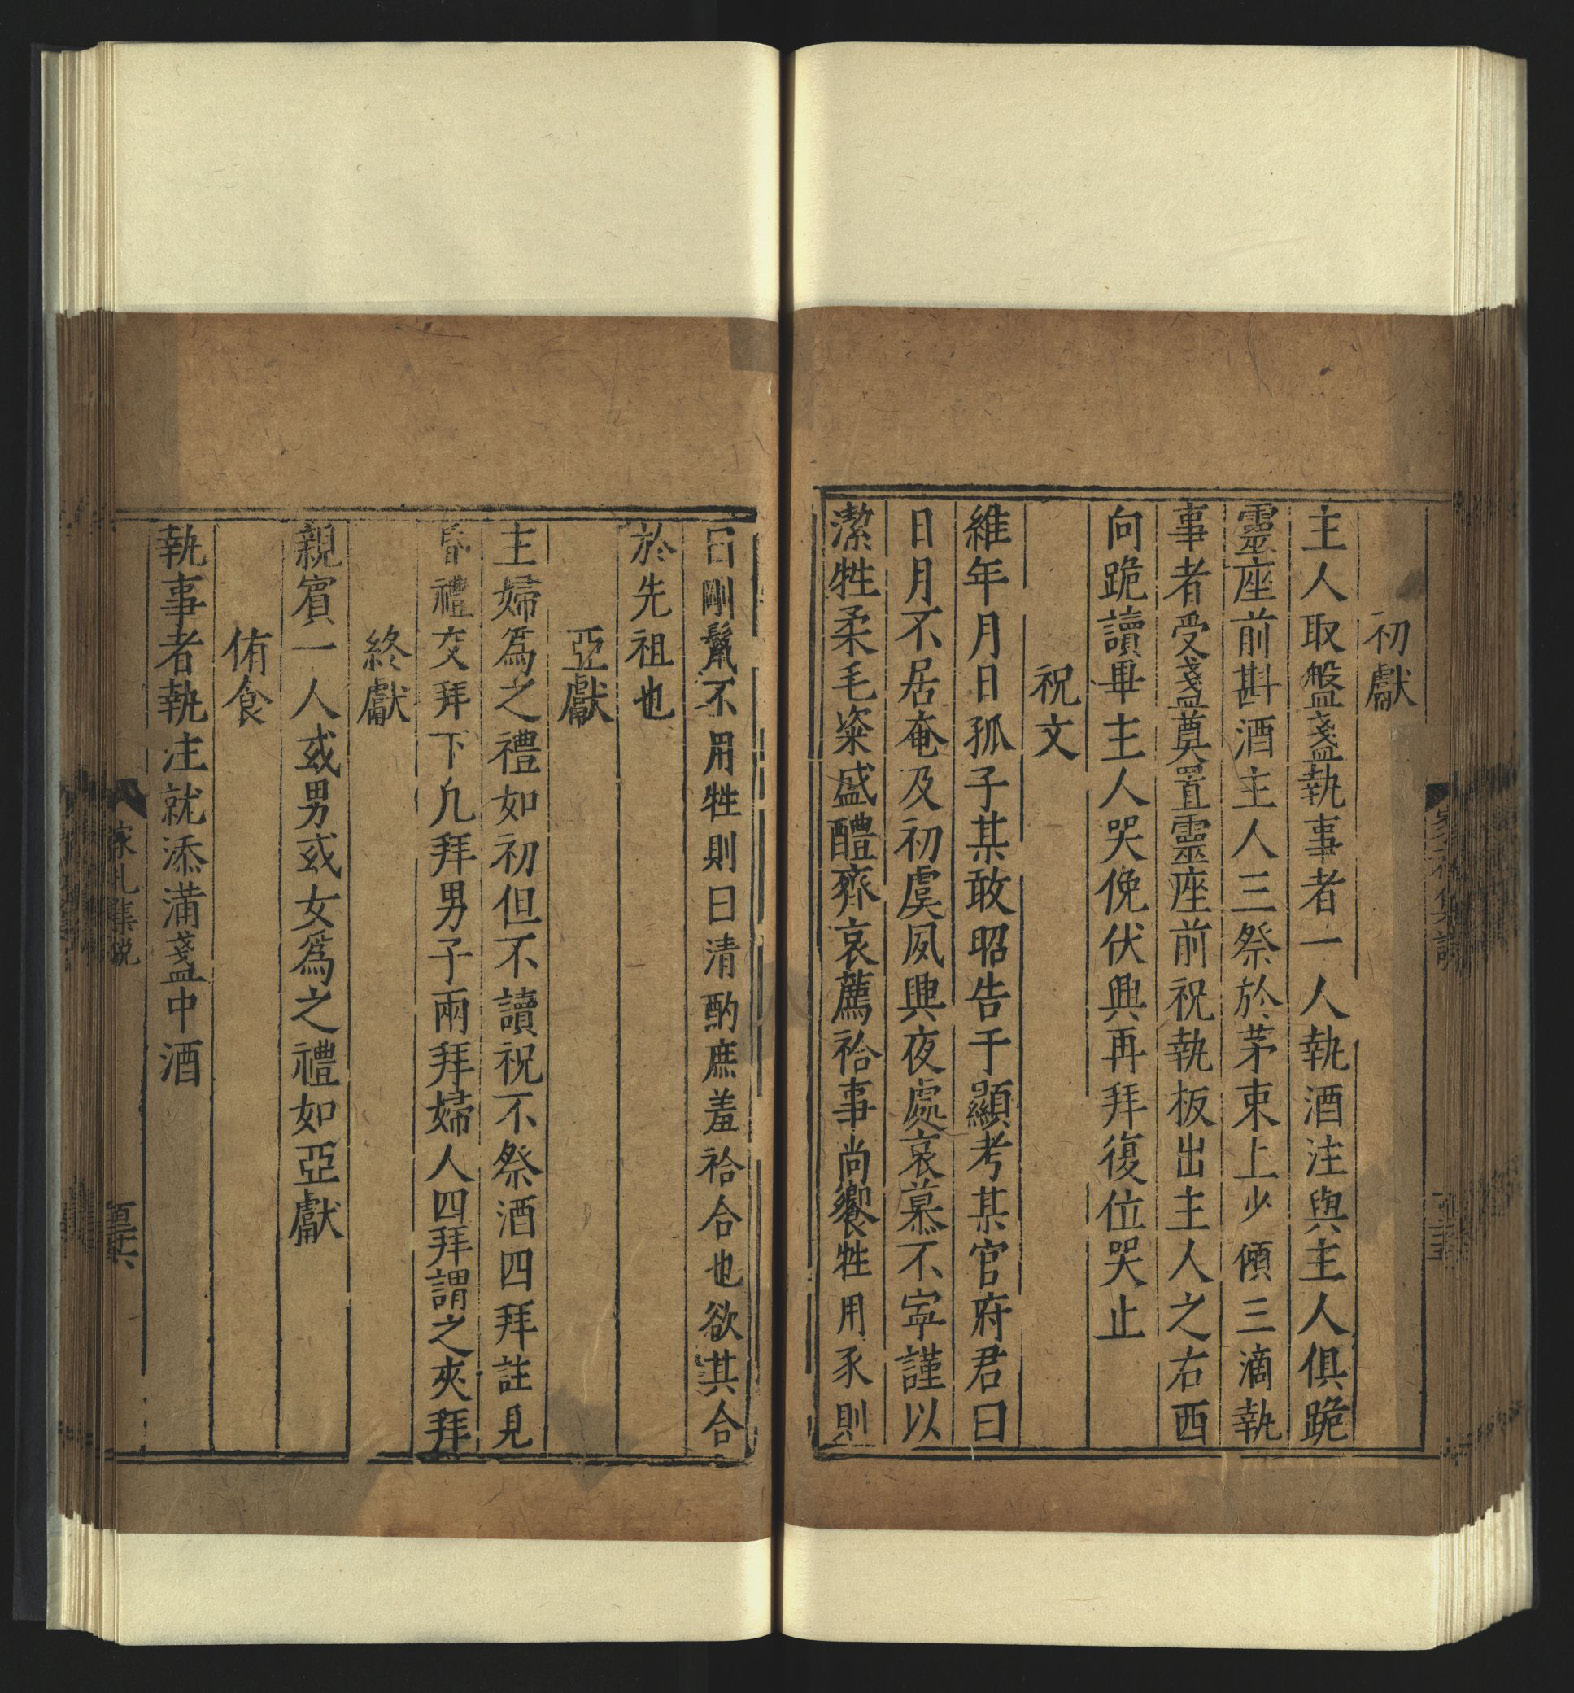 初獻
主人取盤盞執事者一人執酒注與主人俱跪
靈座前斟酒主人三祭於茅束上少傾三滴執
事者受盞奠置靈座前祝執板出主人之右西
向跪讀畢主人哭俛伏興再拜復位哭止
祝文
維年月日孤子某敢昭告于顯考某官府君曰
日月不居奄及初虞夙興夜處哀慕不寧謹以
潔牲柔毛粢盛醴齊哀薦祫事尚饗牲用豕則
曰剛鬣不用牲則曰清酌庶羞祫合也欲其合
於先祖也
亞獻
主婦爲之禮如初但不讀祝不祭酒四拜註見
昏禮交拜下凢拜男子兩拜婦人四拜謂之夾拜
終獻
親賓一人或男或女爲之禮如亞獻
侑食
執事者執注就添滿盞中酒
家礼集說